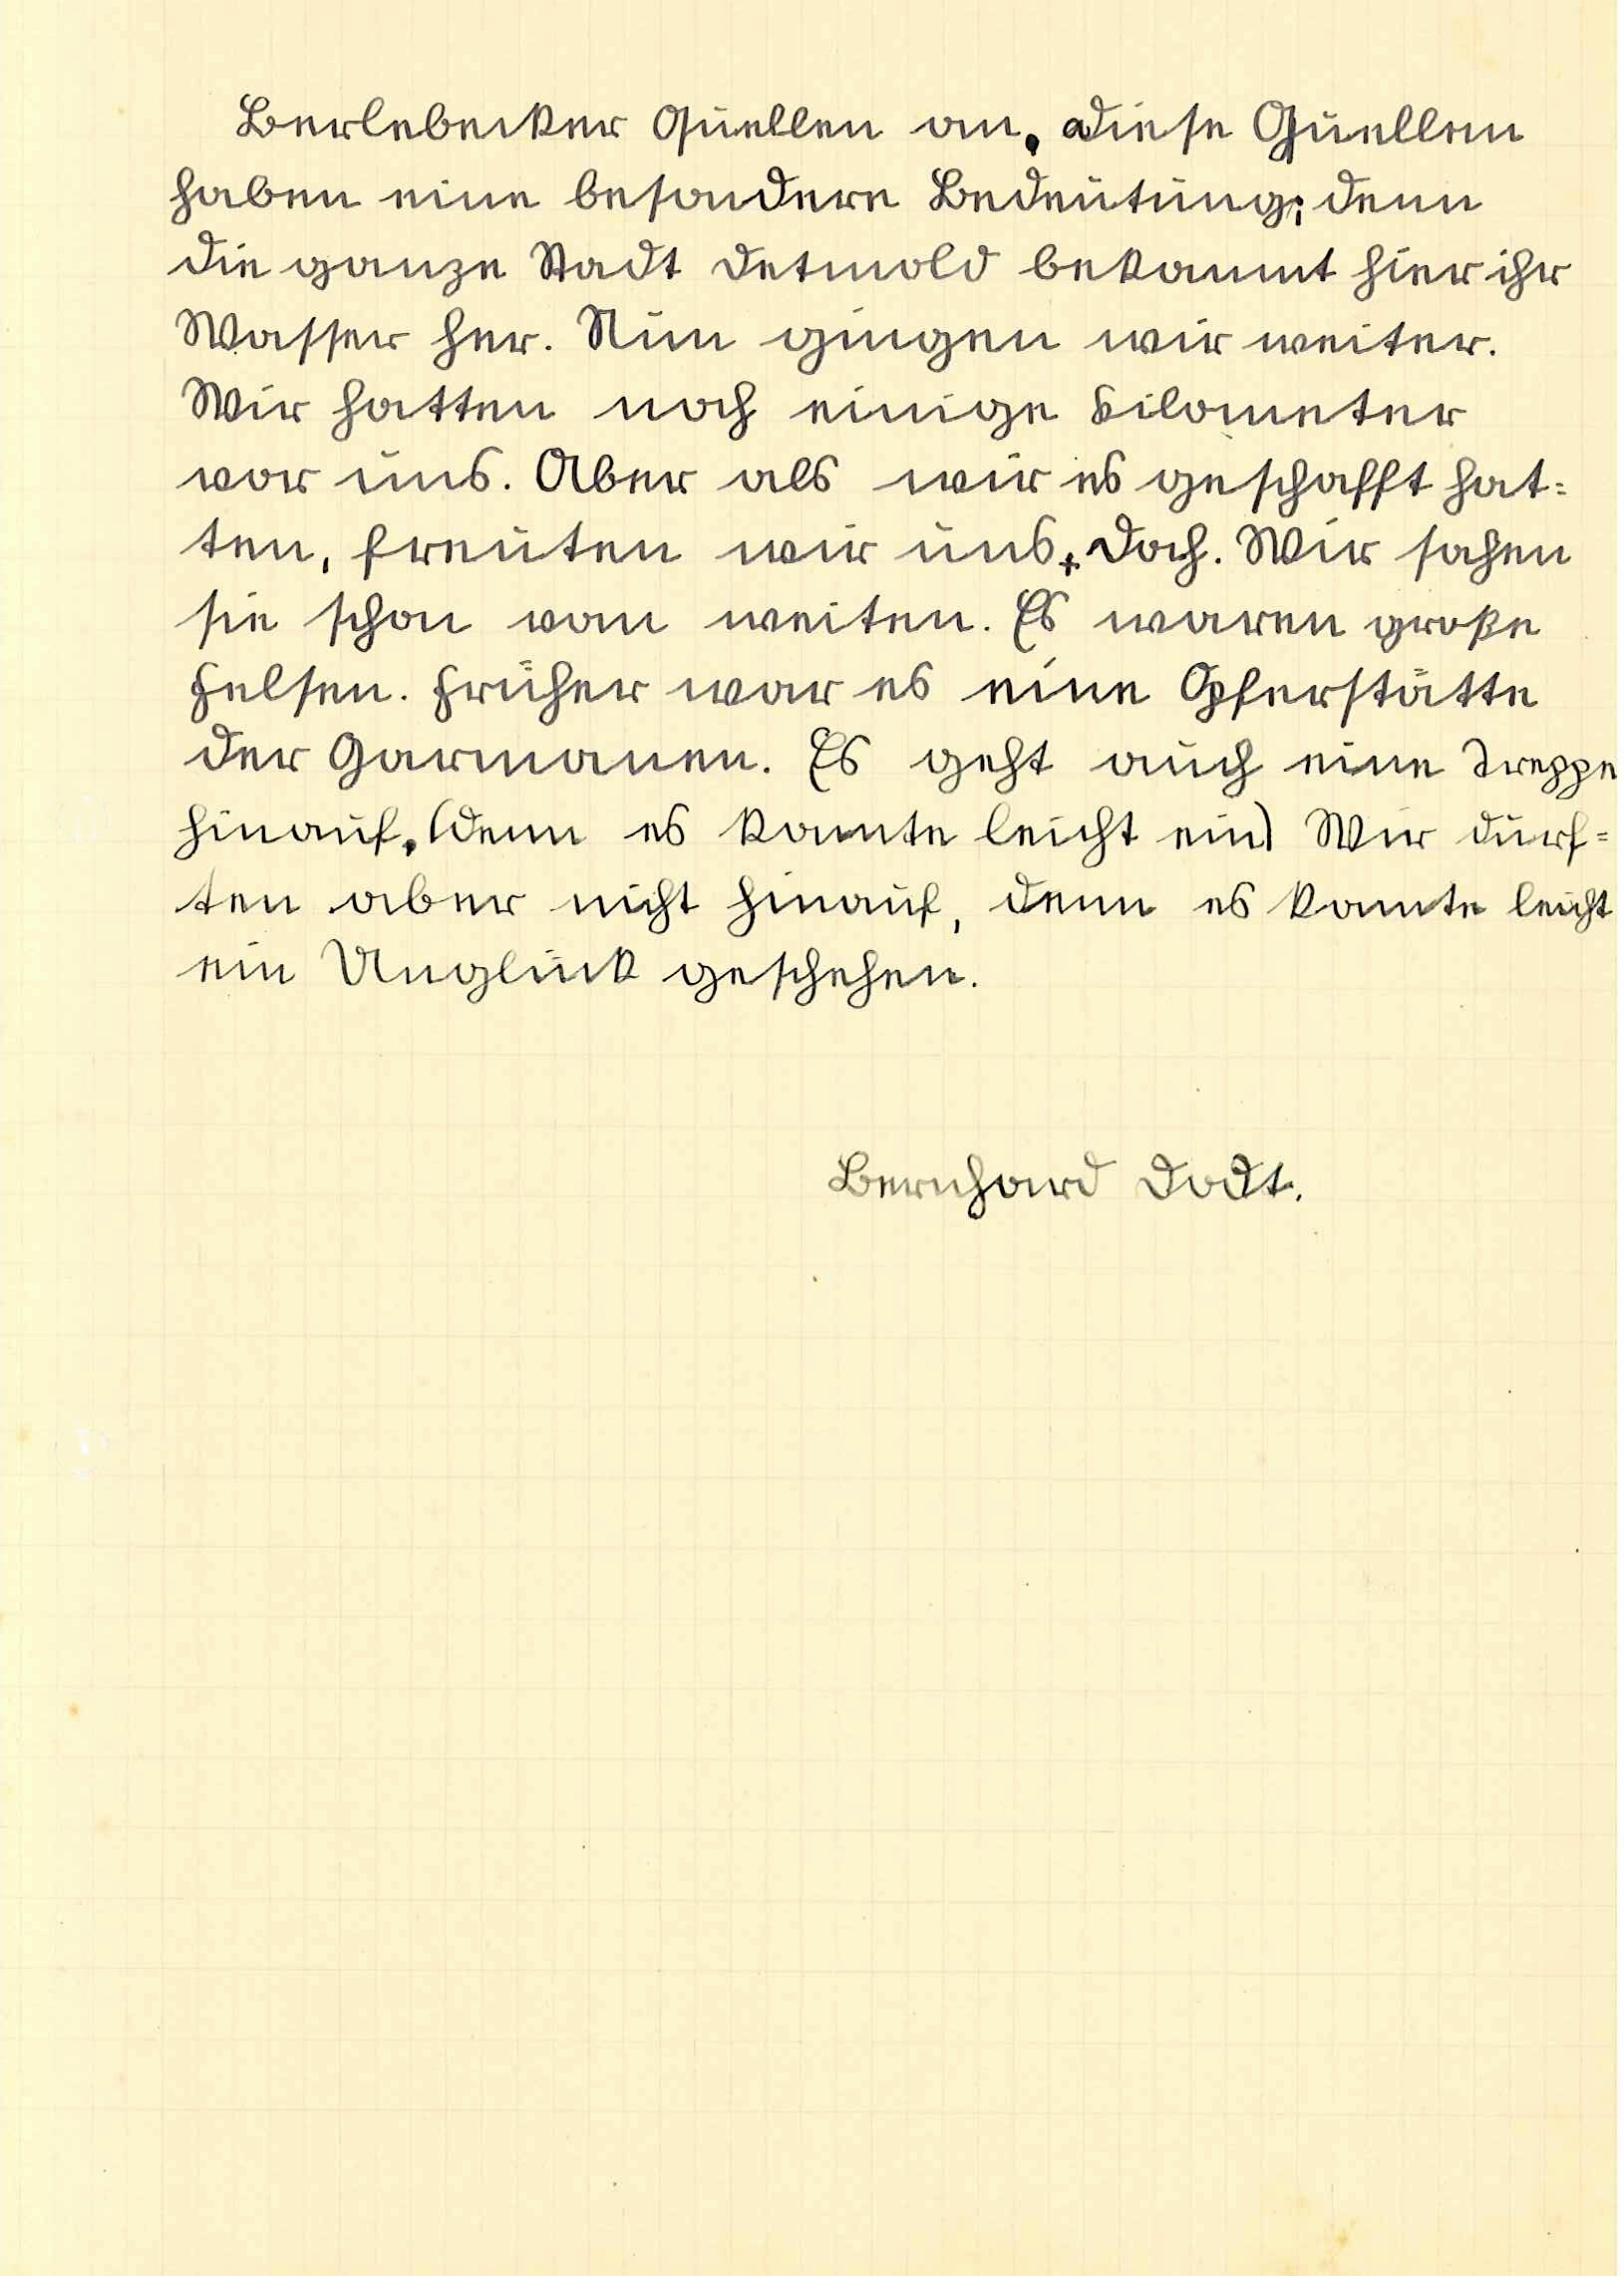 Berlebecker Quellen an. Diese Quellen
haben eine besondere Bedeutung; denn
die ganze Stadt Detmold bekommt hier ihr
Wasser her. Nun gingen wir weiter.
Wir hatten noch einige Kilometer
vor uns. Aber als wir es geschafft hat=
ten, freuten wir uns doch. Wir sahen
sie schon von weiten. Es waren große
Felsen. Früher war es eine Opferstätte
der Germanen. Es geht auch eine Treppe
hinauf. (denn es konnte leicht ein) Wir durf=
ten aber nicht hinauf, denn es konnte leicht
ein Unglück geschehen.
Bernhard Dodt.